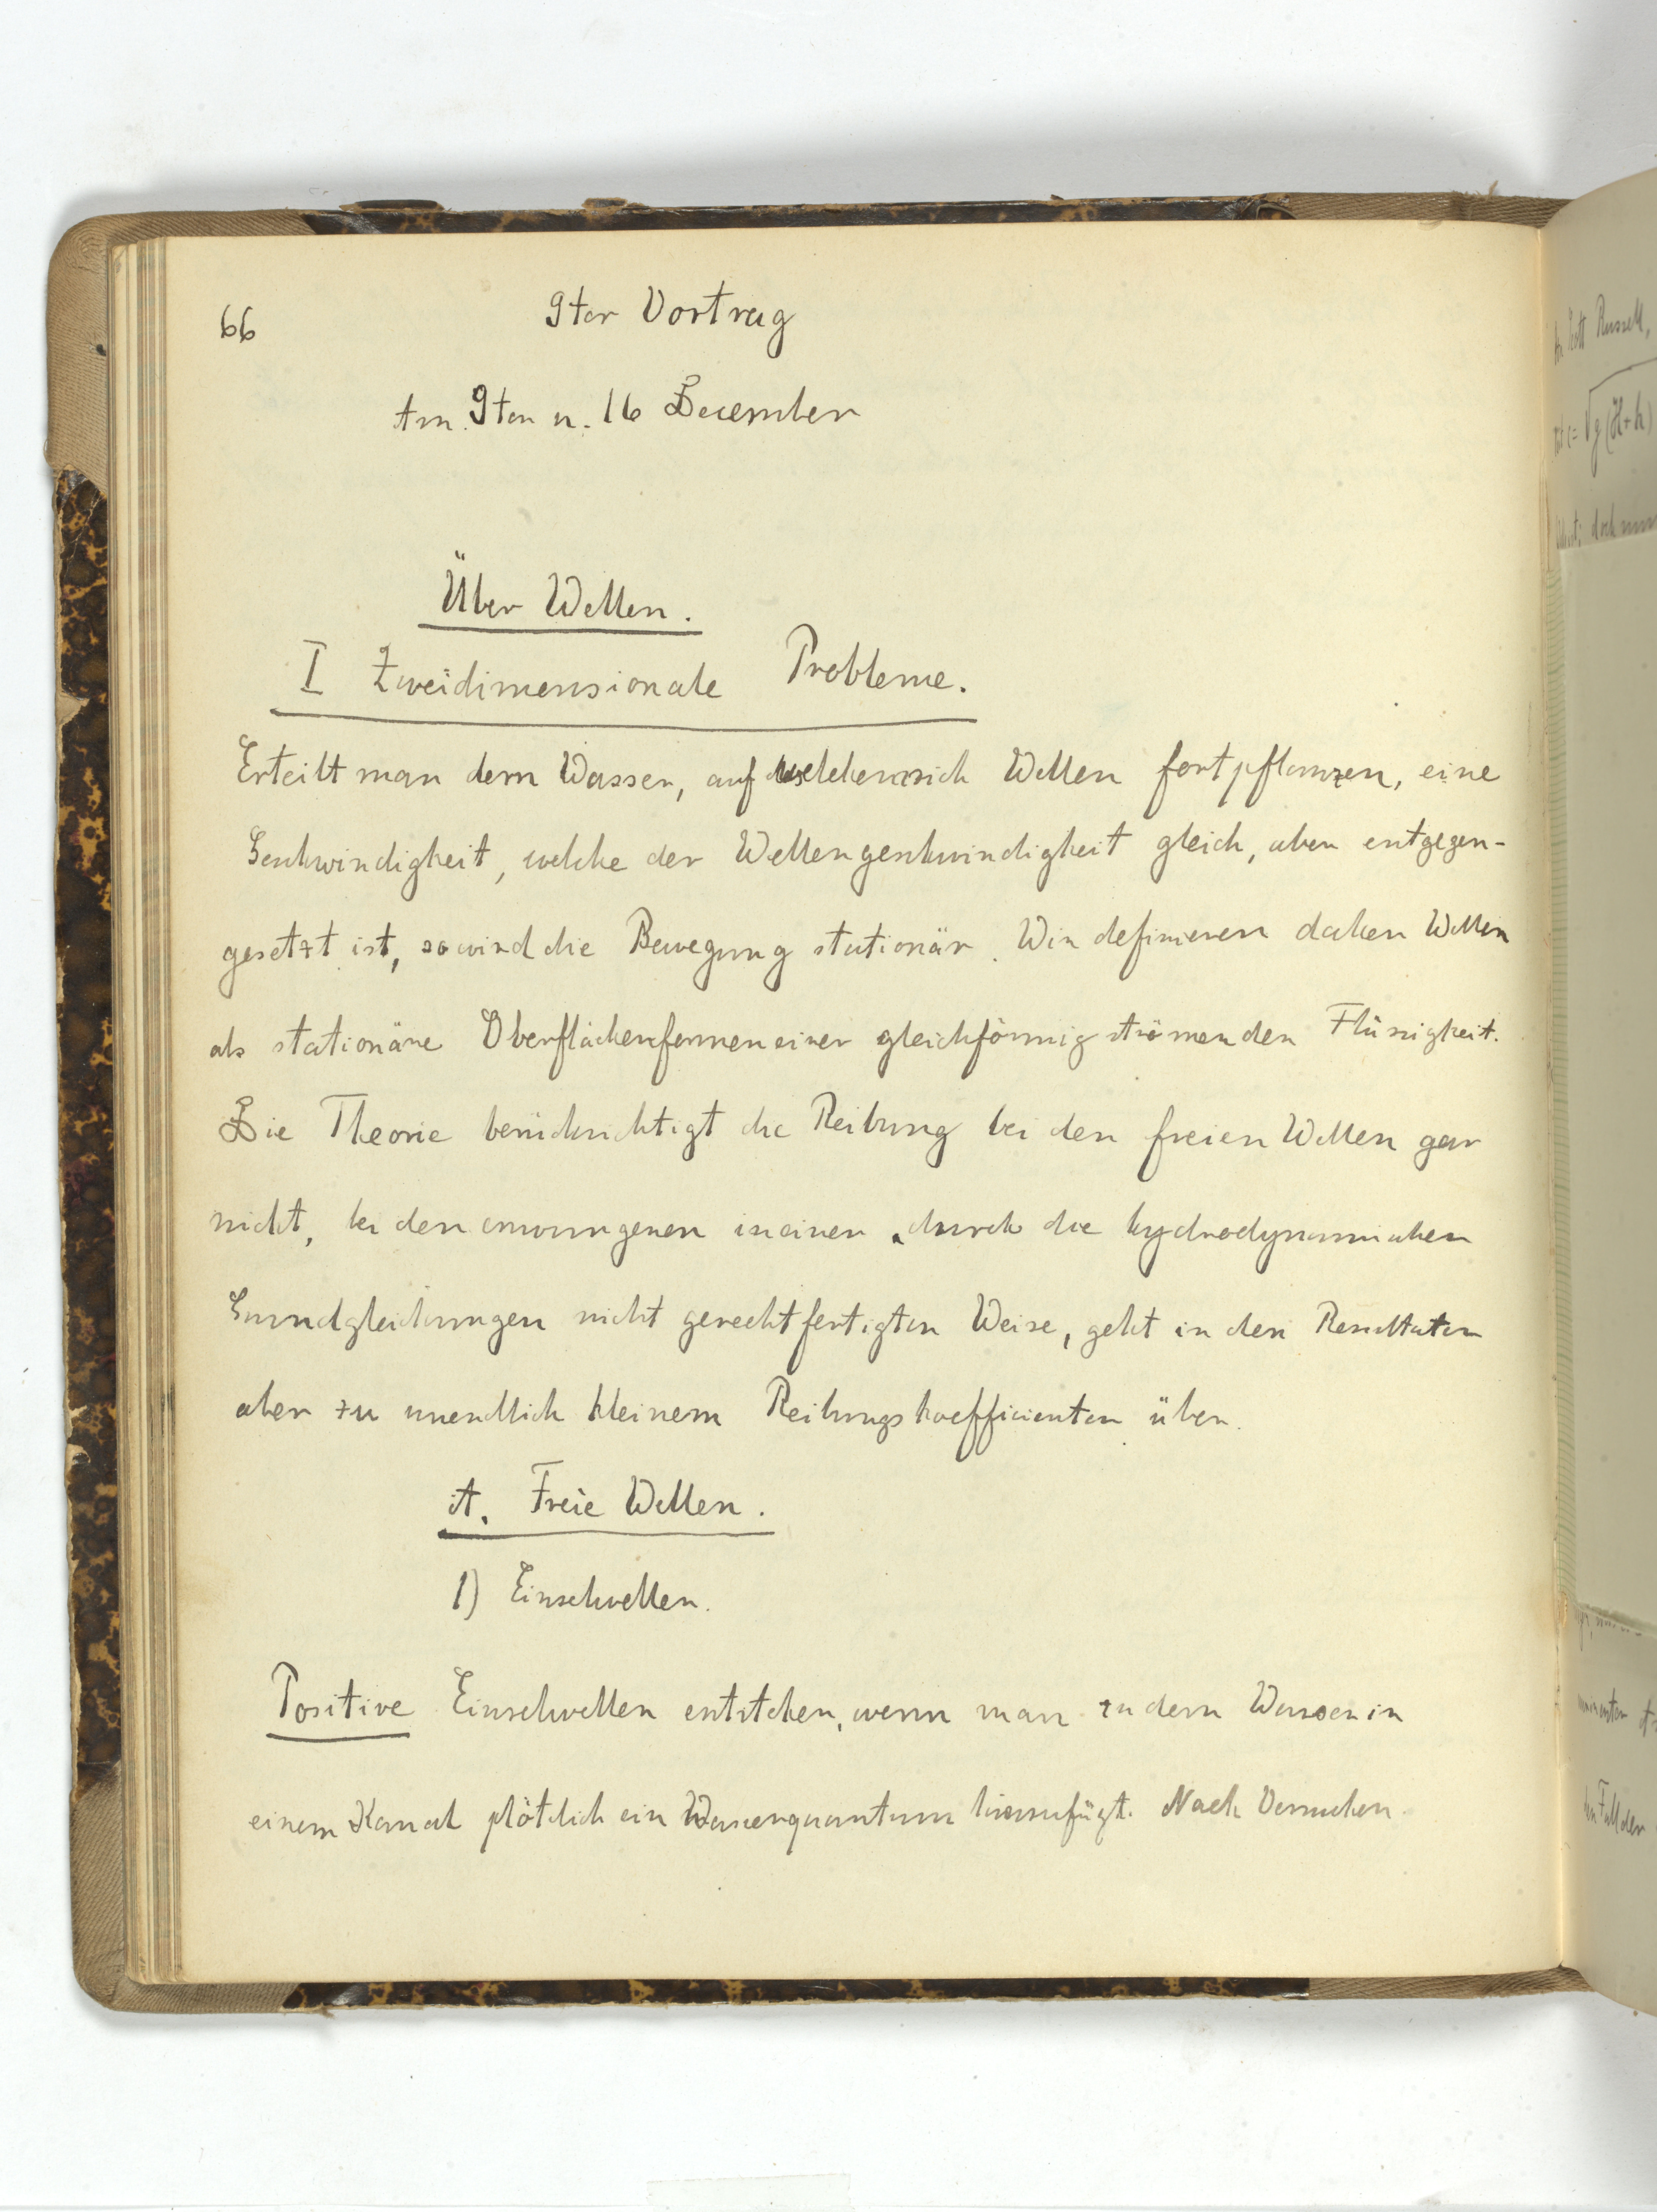 66
9ter Vortrag
Am 9ten u. 16 December
Über Wellen.
I Zweidimensionale Probleme.
Erteilt man dem Wasser, auf welchem sich Wellen fortpflanzen, eine
Geschwindigkeit, welche der Wellengeschwindigkeit gleich, aber entgegen-
gesetzt ist, so wird die Bewegung stationär. Wir definieren daher Wellen
als stationäre Oberflächenformen einer gleichförmig strömenden Flüssigkeit.
Die Theorie berücksichtigt die Reibung bei den freien Wellen gar
nicht, bei den erzwungenen in einer, durch die hydrodynamischen
Grundgleichungen nicht gerechtfertigten Weise, geht in den Resultaten
aber zu unendlich kleinem Reibungskoefficienten über.
A. Freie Wellen.
1) Einzelwellen.
Positive Einzelwellen entstehen, wenn man zu dem Wasser in
einem Kanal plötzlich ein Wasserquantum hinzufügt. Nach Versuchen
Scott Russell,
g(H+h)